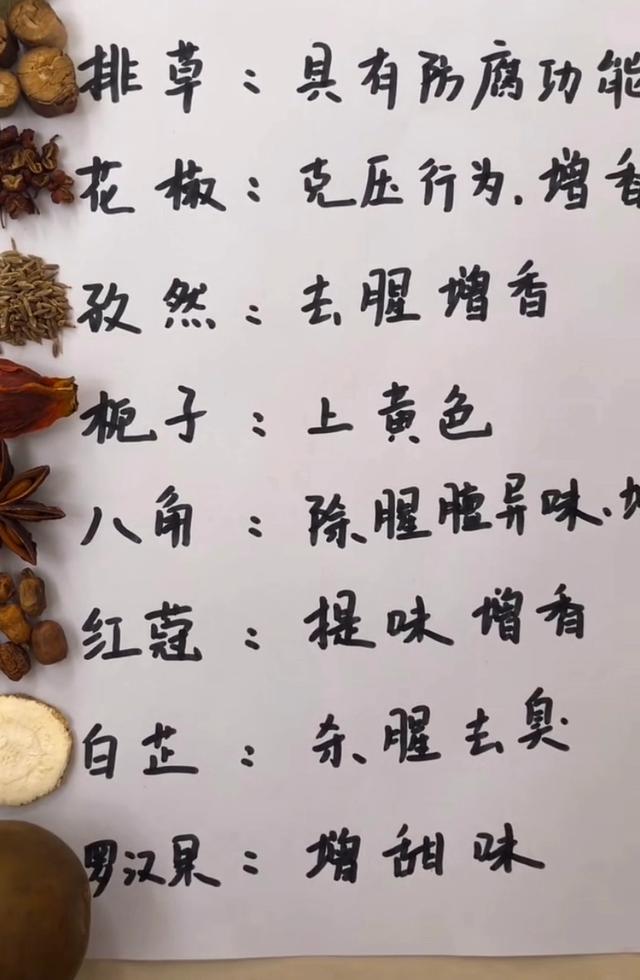 排草：具有防腐功能
花椒：克压行为.增香
孜然：去腥增香
栀子：上黄色
八角：除腥膻异味.
红蔻：提味增香
白芷：杀腥去臭
罗汉果：增甜味